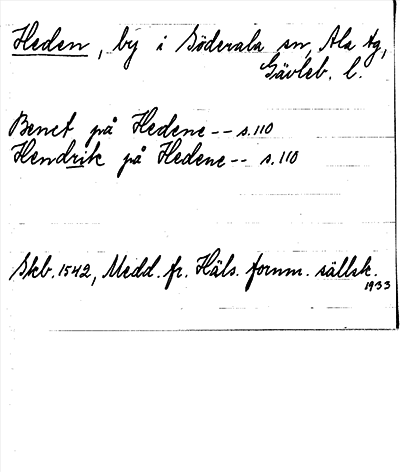 Heden, by i Söderala sn, Ala tg,
Gävleb. l.
Benct på Hedene -- s. 110
Hendrik på Hedene -- s. 110
Skb. 1542, Medd. fr. Häls. fornm. sällsk.
1933